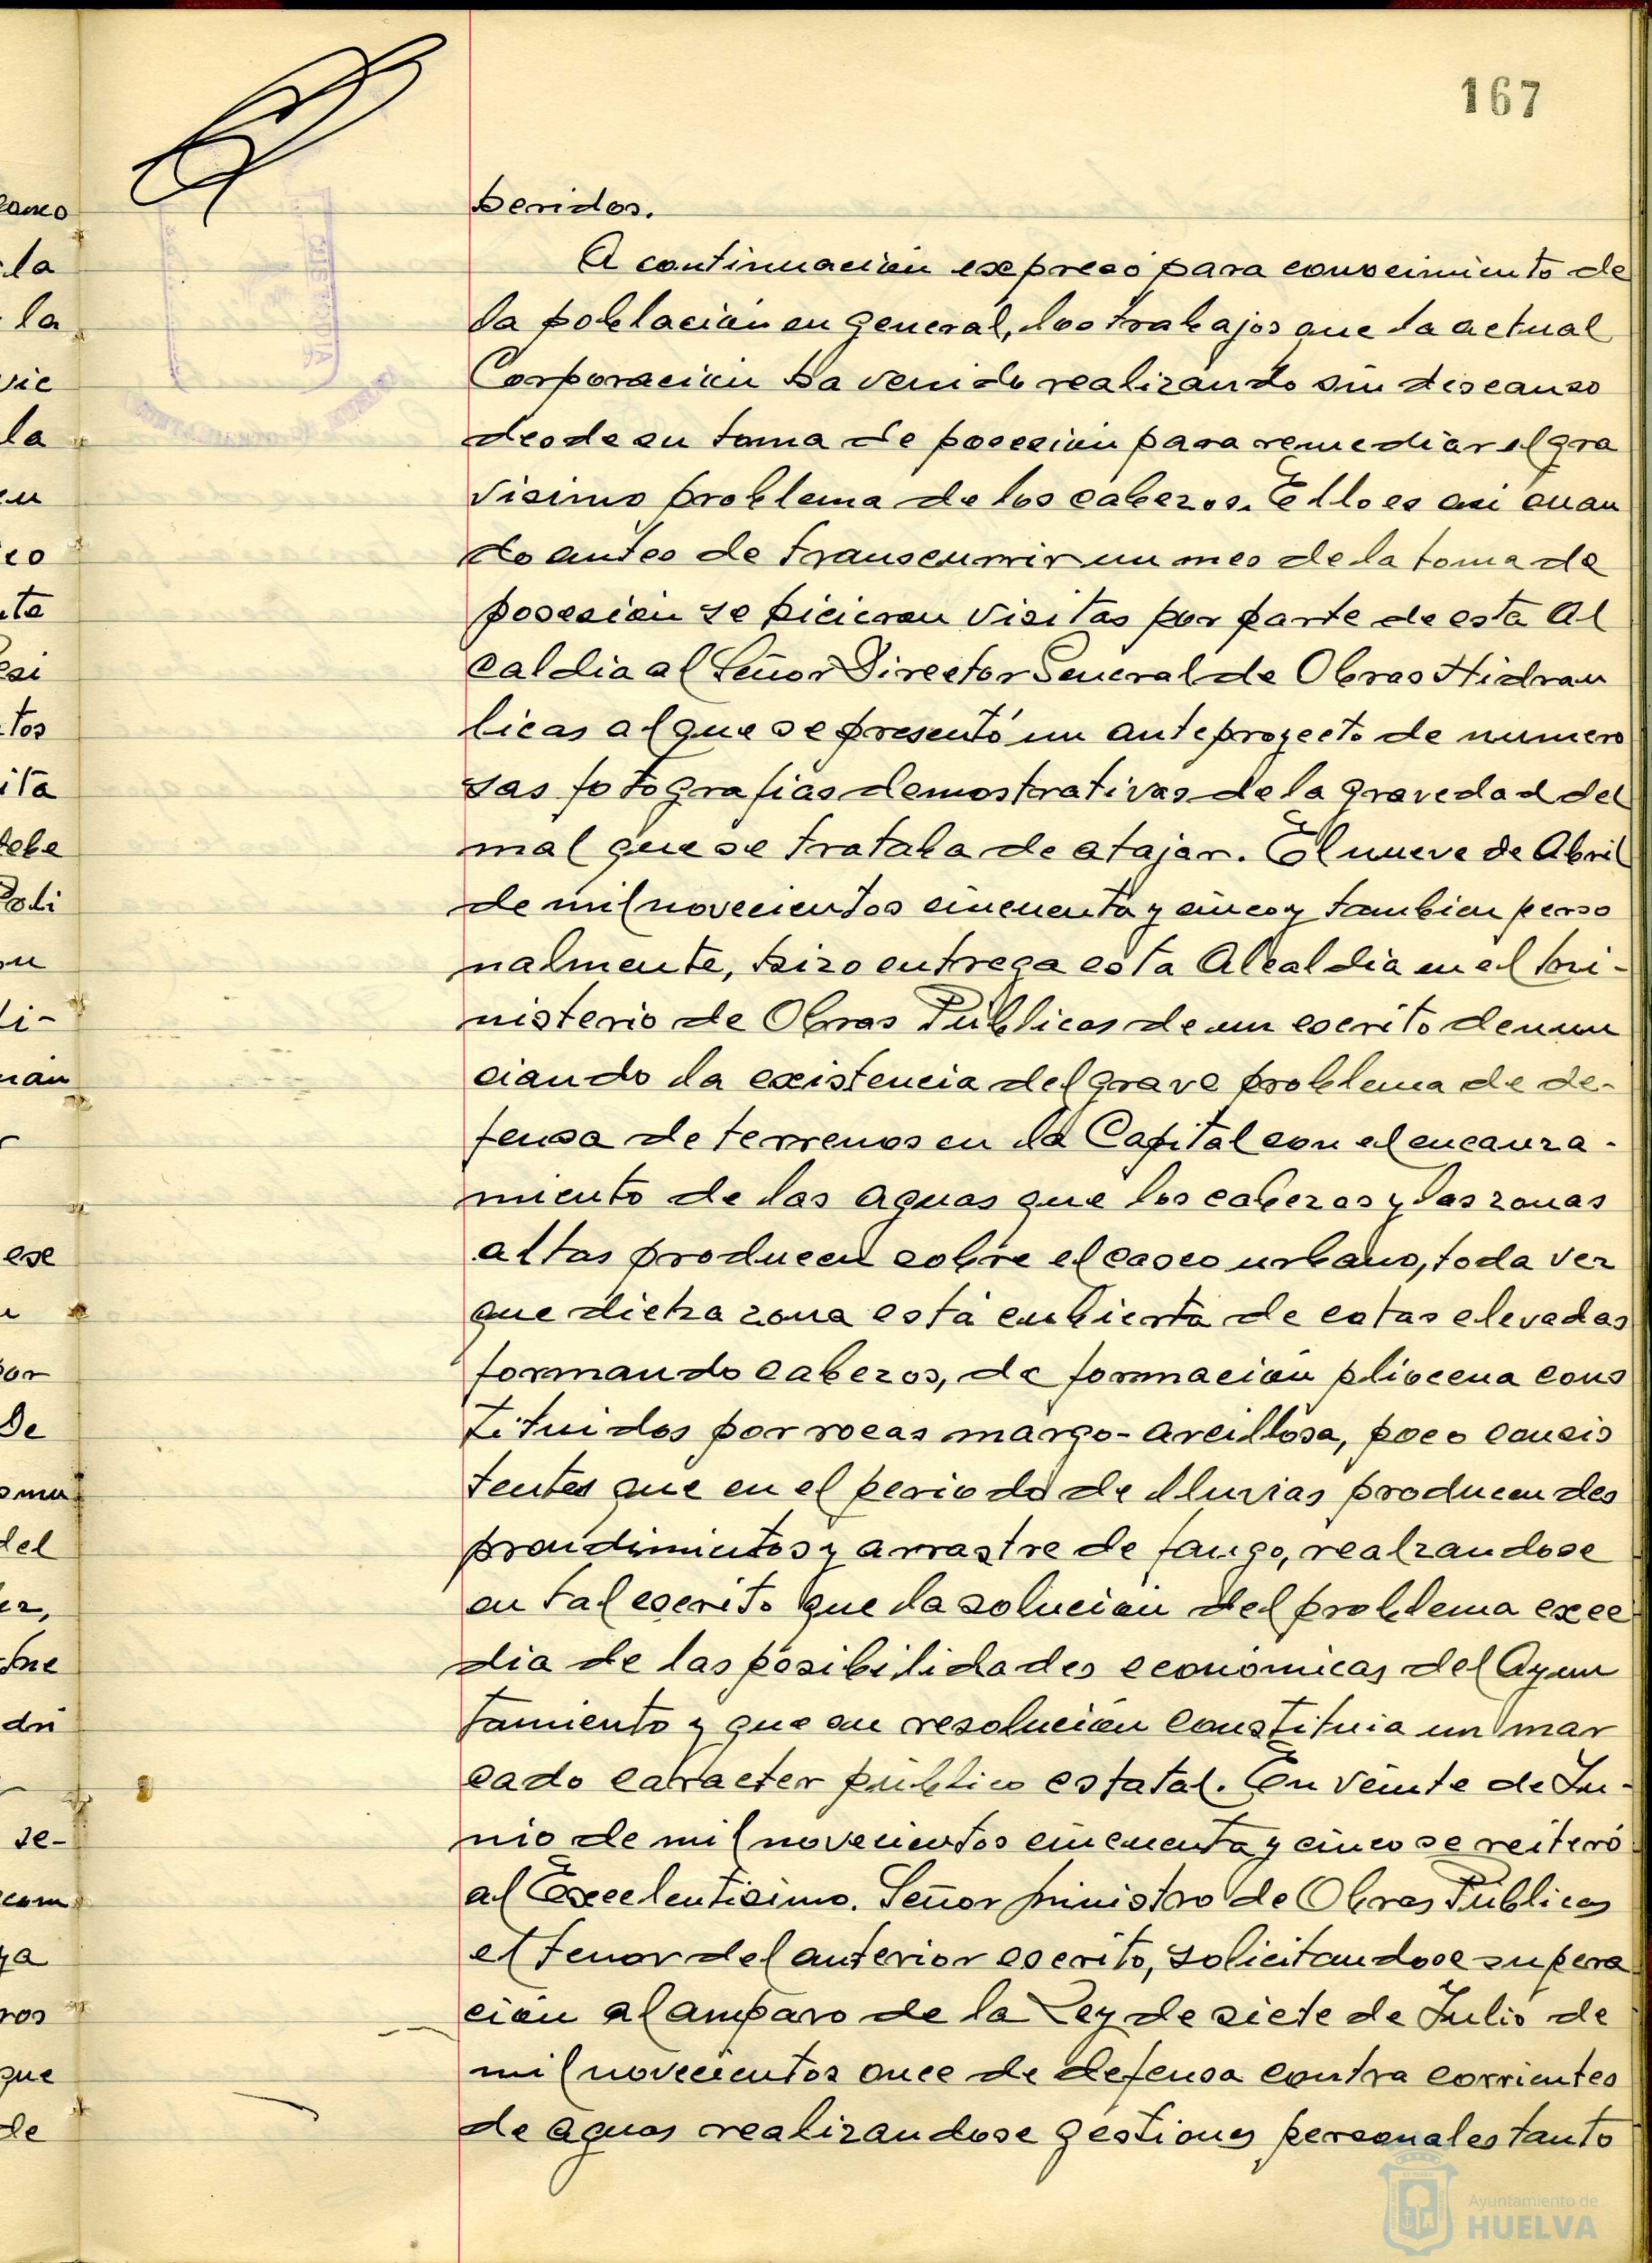 167
heridos.
A continuación expresó para conocimiento de
la población en general, los trabajos que la actual
Corporación ha venido realizando sin descanso
desde su toma de posesión para remediar el gra
visimo problema de los cabezos. Ello es asi cuan
do antes de transcurrir un mes de la toma de
posesión se hicieron visitas por parte de esta Al
caldia al Señor Director General de Obras Hidrau
licas al que se presentó un anteproyecto de numero
sas fotografias demostrativas de la gravedad del
mal que se trataba de atajar. El nueve de Abril
de mil novecientos cincuenta y cinco y tambien perso
nalmente, hizo entrega esta Alcaldia en el Mi-
nisterio de Obras Públicas de un escrito denun
ciando la existencia del grave problema de de-
fensa de terrenos en la Capital con el encauza-
miento de las aguas que los cabezos y las zonas
altas producen sobre el casco urbano, toda vez
que dicha zona está cubierta de cotas elevadas
formando cabezos, de formación pliocena cons
tituidos por rocas margo-arcillosa, poco consis
tentes que en el periodo de lluvias producen des
prendimientos y arrastre de fango, realzandose
en tal escrito que la solución del problema exce
dia de las posibilidades económicas del Ayun
tamiento y que su resolución constituia un mar
cado caracter público estatal. En veinte de Ju-
nio de mil novecientos cincuenta y cinco se reiteró
al Excelentisimo. Señor Ministro de Obras Públicas
el tenor del anterior escrito, solicitandose su pera
ción al amparo de la Ley de siete de Julio de
mil novecientos once de defensa contra corrientes
de aguas realizandose gestiones personales tanto
Ayuntamiento de
HUELVA